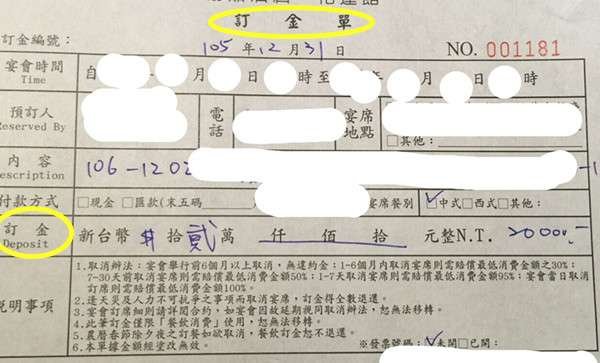 訂 金 單
訂金編號：
105 年 12 月 31 日
NO. 001181
宴會時間 Time
自 月 日 時至 年 月 日 時
預訂人 Reserved By
電話
宴席地點
□其他：
內容 Description
106-1202
付款方式
□現金 □匯款(末五碼
宴席餐別 ☑中式□西式□其他：
訂金 Deposit
新台幣 $ 拾 貳 萬 仟 佰 拾 元整N.T. 20000.-
說明事項
1.取消辦法：宴會舉行前6個月以上取消，無違約金；1-6個月內取消宴席則需賠償最低消費金額之30%；
7-30天前取消宴席則需賠償最低消費金額50%；1-7天取消宴席則需賠償最低消費金額95%；宴會當日取消
則需賠償最低消費金額100%。
2.逢天災及人力不可抗爭之事項而取消宴席，訂金得全數退還。
3.宴會訂席細則請詳閱合約，如宴會因故延期視同取消辦法，恕無法移轉。
4.此筆訂金僅限「餐飲消費」使用，恕無法移轉。
5.農曆春節除夕夜之訂餐如欲取消，餐飲訂金恕不退還。
6.本單據金額經塗改無效。
※發票號碼：☑未開□已開：